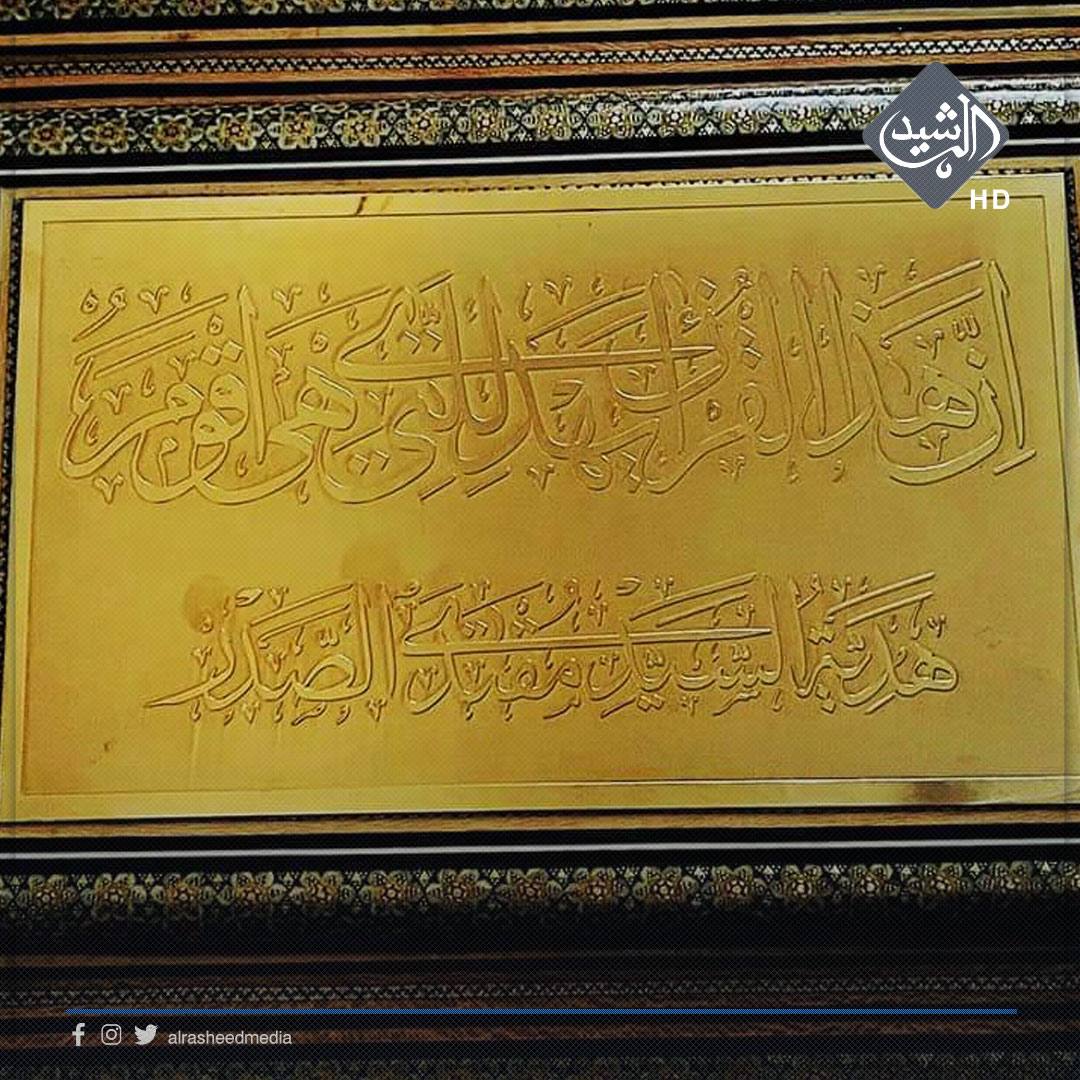 الرشيد
HD
اِنَّ هٰذَا الْقُرْاٰنَ يَهْدِي لِلَّتِي هِيَ اَقْوَمُ
هَدِيَّةُ السَّيِّدْ مُقْتَدَى الصَّدْرْ
alrasheedmedia